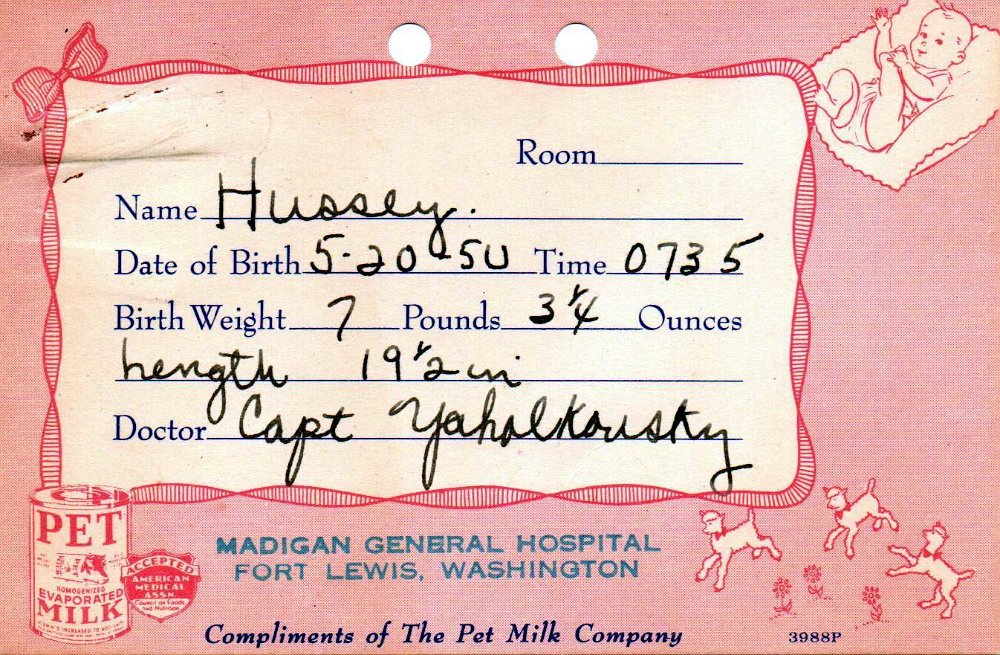 Room
Name Hussey.
Date of Birth 5-20-50 Time 0735
Birth Weight 7 Pounds 3 1/4 Ounces
Length 19 1/2 in
Doctor Capt Yaholkousky
PET
HOMOGENIZED
EVAPORATED
MILK
ACCEPTED
AMERICAN
MEDICAL
ASSN.
Council on Foods
and Nutrition
MADIGAN GENERAL HOSPITAL
FORT LEWIS, WASHINGTON
Compliments of The Pet Milk Company
3988P